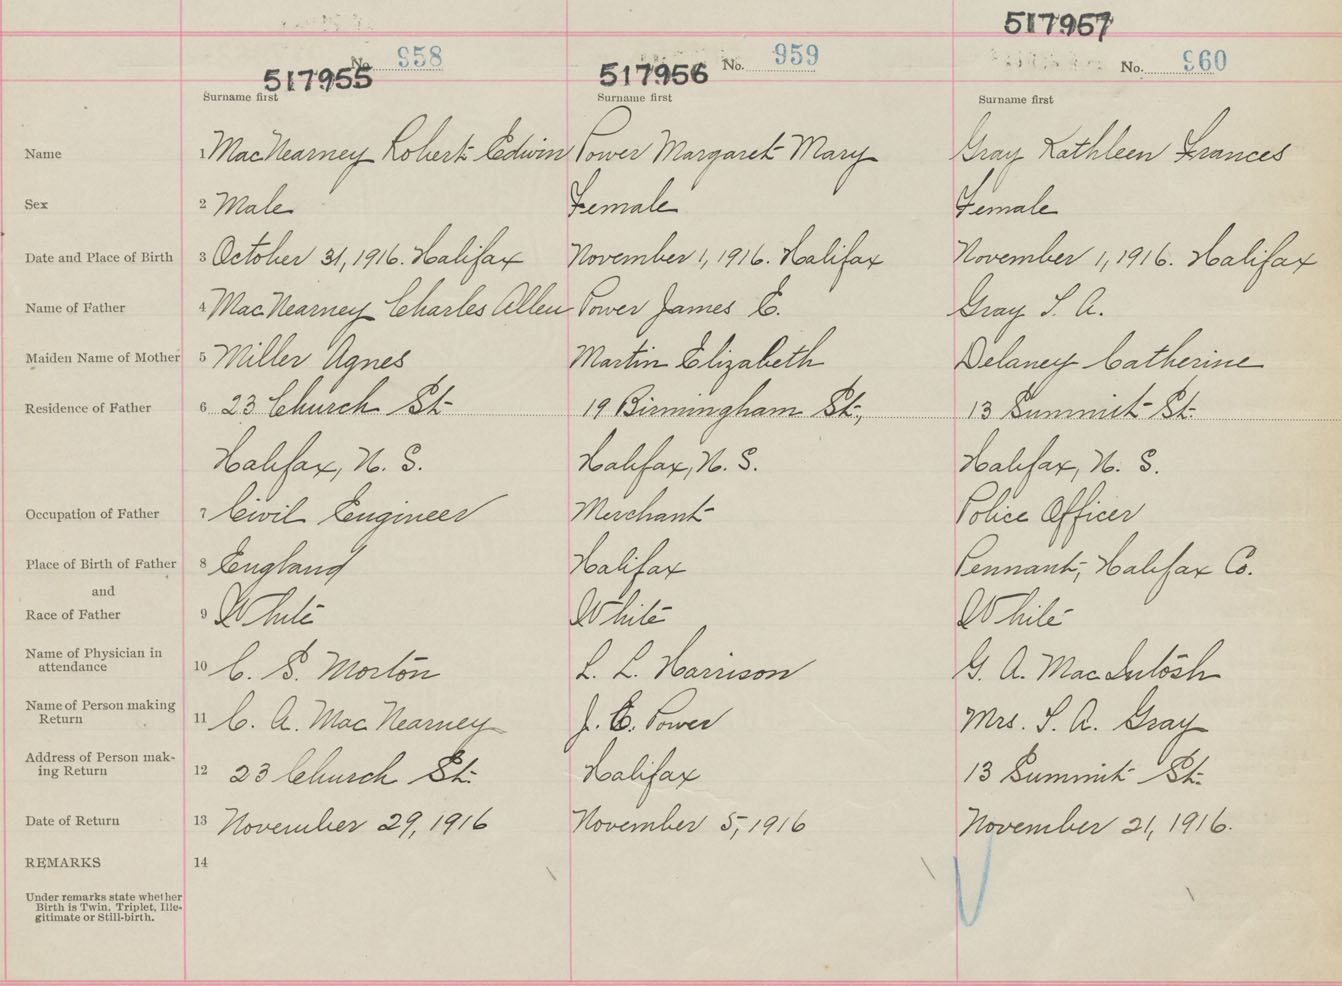 517957
No. 958 No. 959 No. 960
517955 517956
Surname first Surname first Surname first
Name 1 MacNearney Robert Edwin Power Margaret Mary Gray Kathleen Frances
Sex 2 Male Female Female
Date and Place of Birth 3 October 31, 1916. Halifax November 1, 1916. Halifax November 1, 1916. Halifax
Name of Father 4 MacNearney Charles Allen Power James E. Gray T. A.
Maiden Name of Mother 5 Miller Agnes Martin Elizabeth Delaney Catherine
Residence of Father 6 23 Church St. 19 Birmingham St., 13 Summit St.
Halifax, N. S. Halifax, N. S. Halifax, N. S.
Occupation of Father 7 Civil Engineer Merchant Police Officer
Place of Birth of Father 8 England Halifax Pennant, Halifax Co.
and
Race of Father 9 White White White
Name of Physician in
attendance 10 C. S. Morton L. L. Harrison G. A. MacIntosh
Name of Person making
Return 11 C. A. MacNearney J. E. Power Mrs. T. A. Gray
Address of Person mak-
ing Return 12 23 Church St. Halifax 13 Summit St.
Date of Return 13 November 29, 1916 November 5, 1916 November 21, 1916.
REMARKS 14
Under remarks state whether
Birth is Twin, Triplet, Ille-
gitimate or Still-birth.